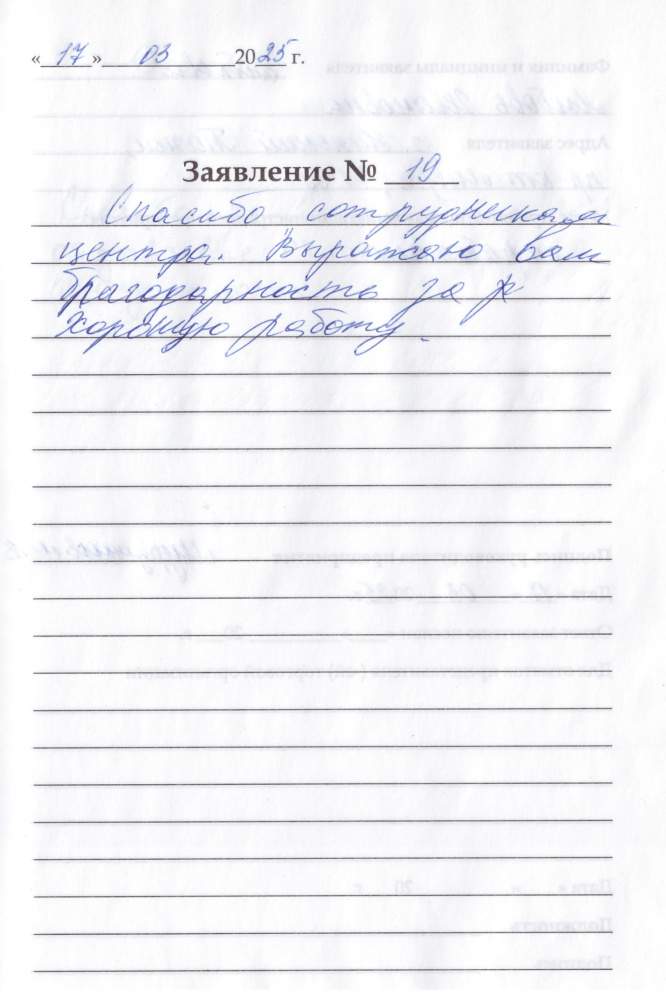 « 17 » 03 2025 г.
Заявление № 19
Спасибо сотрудникам
центра. Выражаю вам
благодарность за р
хорошую работу.